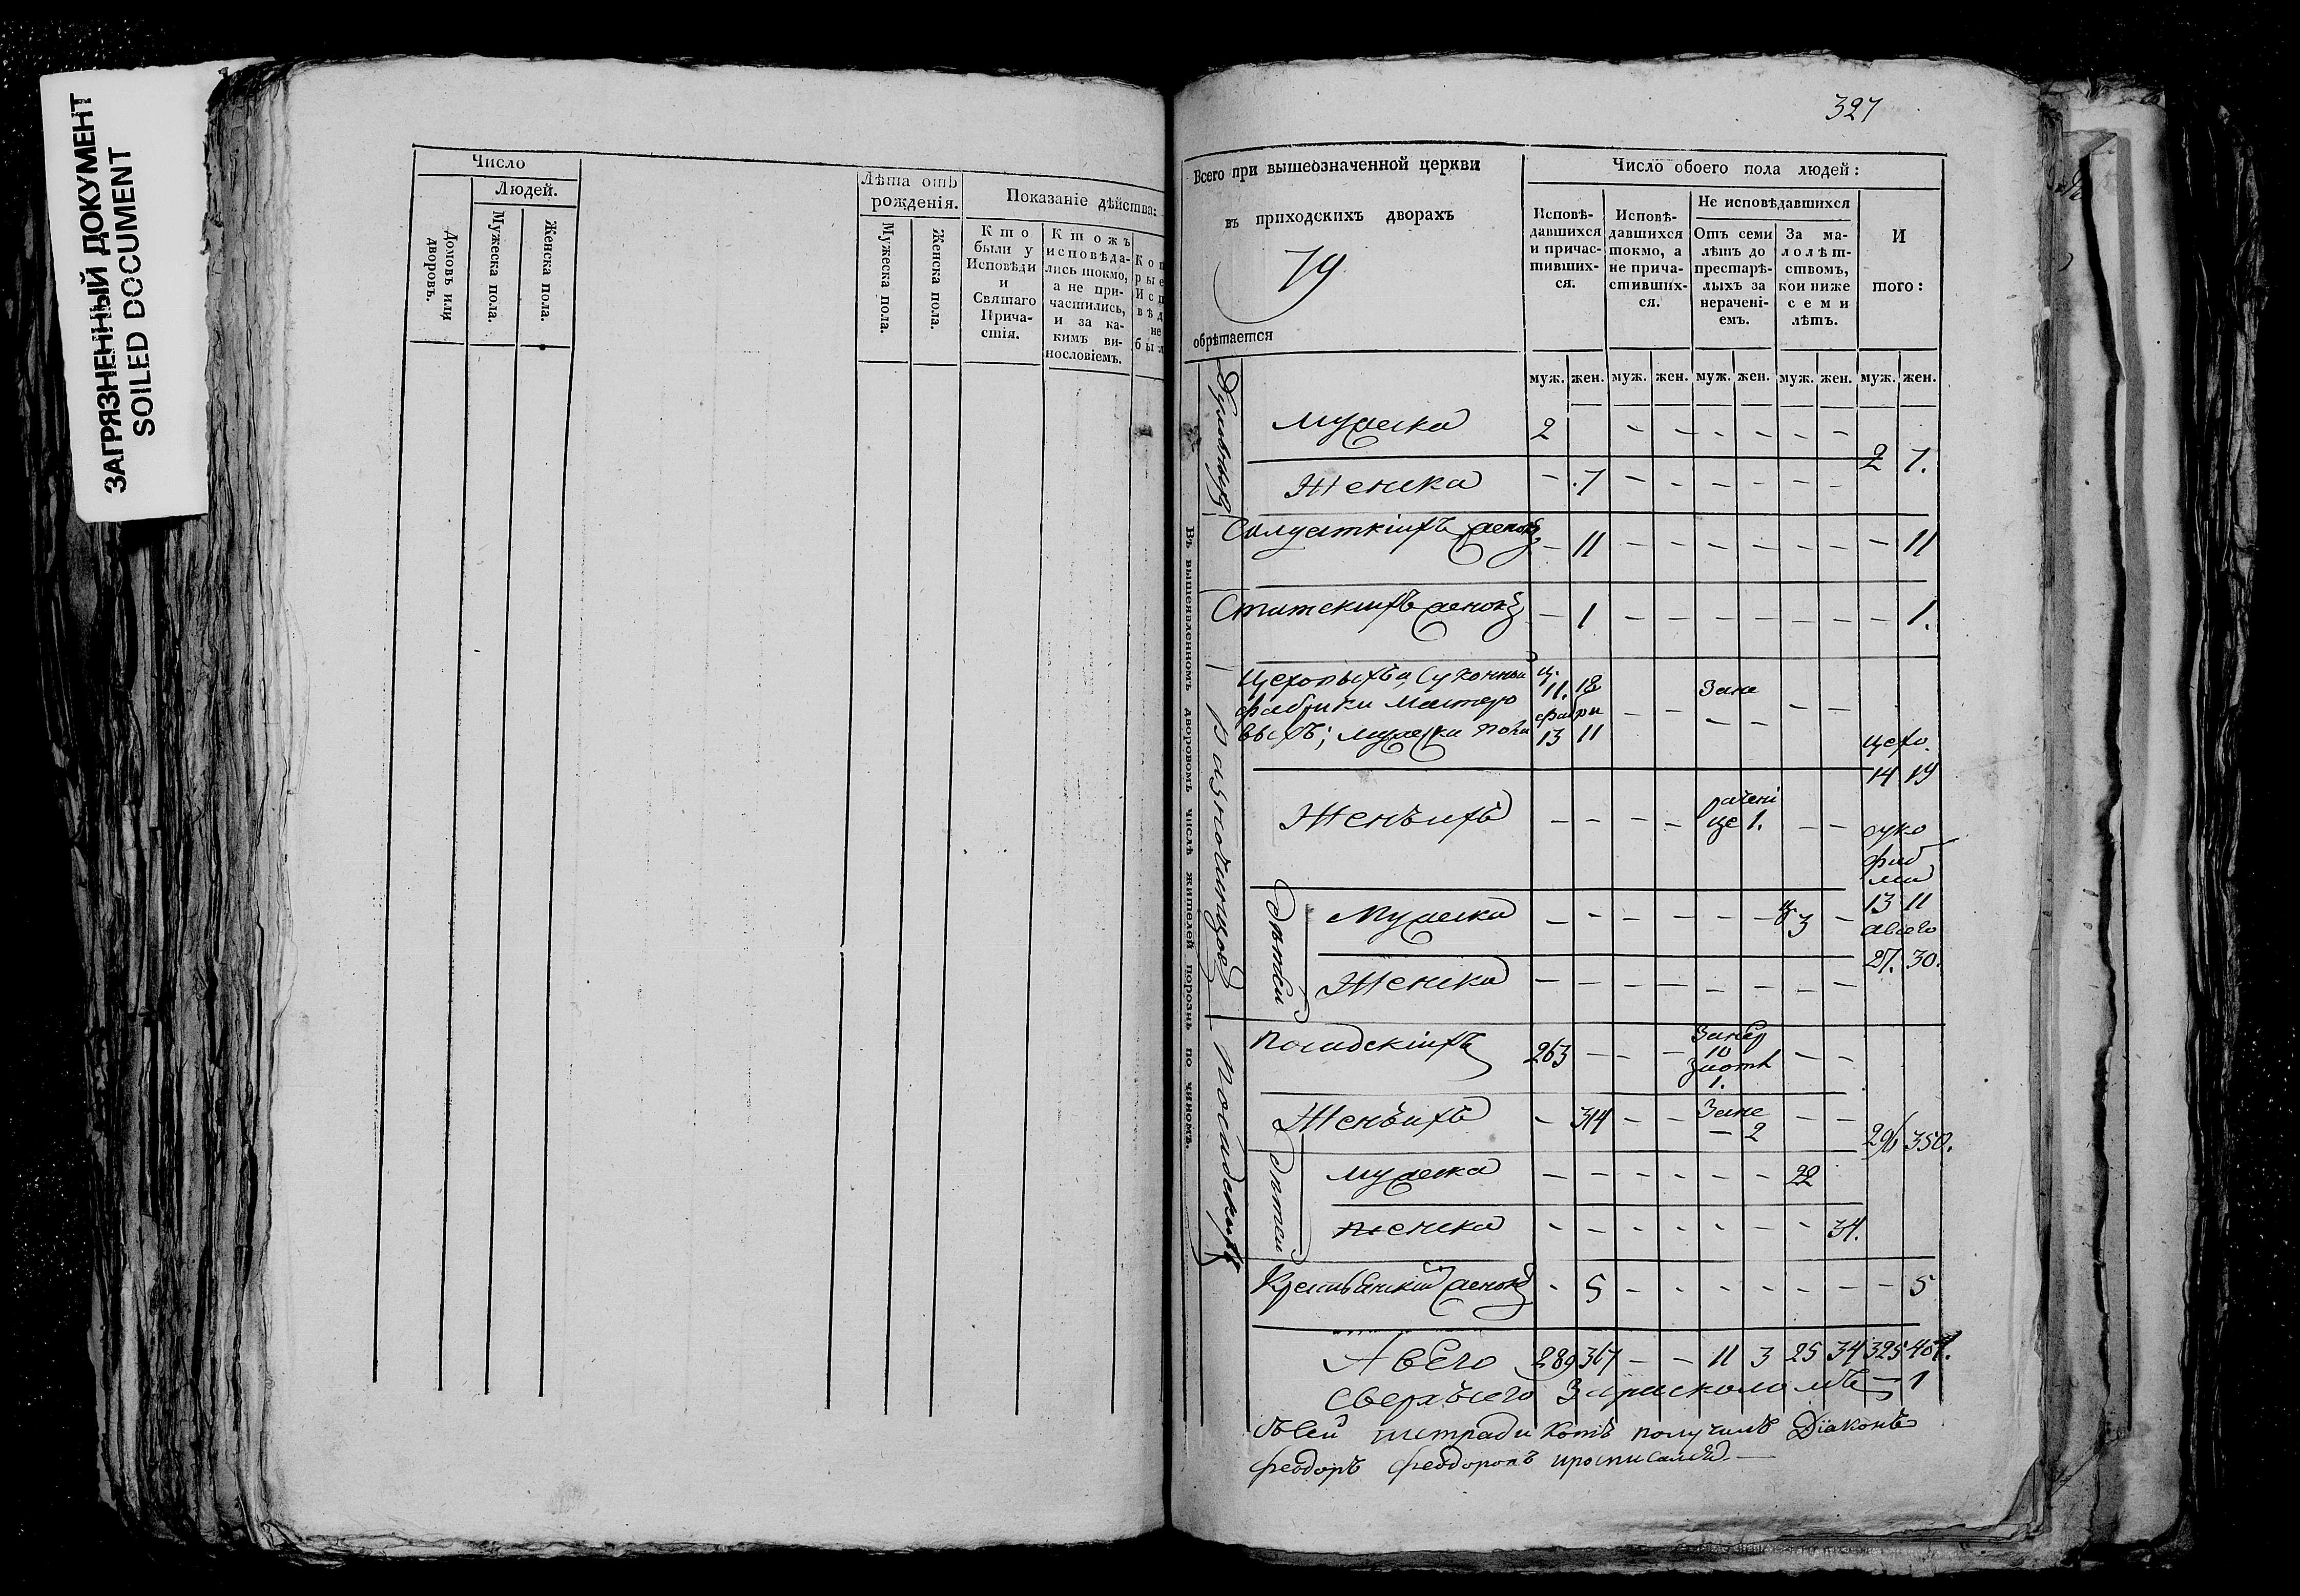 ЗАГРЯЗНЕННЫЙ ДОКУМЕНТ
SOILED DOCUMENT
Число
Людей.
Домовъ или дворовъ.
Мужеска пола.
Женска пола.
Лѣта отъ рожденія.
Мужеска пола.
Женска пола.
Показаніе дѣйства:
Кто были у Исповѣди и Святаго Причастія.
Ктожъ исповѣдались токмо, а не причастились, и за какимъ винословіемъ.
327
Всего при вышеозначенной церкви
въ приходскихъ дворахъ
79
обрѣтается
Число обоего пола людей:
Исповѣдавшихся и причастившихся.
Исповѣдавшихся токмо, а не причастившихся.
Не исповѣдавшихся
Отъ семи лѣтъ до престарѣлыхъ за нераченіемъ.
За малолѣтствомъ, кои ниже семи лѣтъ.
И того:
муж. жен. муж. жен. муж. жен. муж. жен. муж. жен.
Въ вышеявленномъ дворовомъ числѣ жителей порознь по чиномъ.
Мужеска 2 – – – – – –
2 7.
Женска – 7 – – – – – –
Салдаткихъ женокъ – 11 – – – – – – – 11
Статскихъ женокъ – 1 – – – – – – – 1.
Разночинцовъ
Цеховыхъ и Суконной ц. 11. 18
фабрики мастеро фабри – – Зане – –
выхъ; мужеска пола 13 11 – –
цехо
14 19
Женъ ихъ – – – – рачені це 1. – –
суко
фаб
13 11
Дѣтей
Мужеска – – – – – – ц 3 –
авсего
27. 30.
Женска – – – – – – – –
Посадскихъ
Посадскихъ 263 – – – 10 – –
1.
Женъ ихъ – 314 – – Зане – 2 – –
296 350.
Дѣтей
мужеска – – – – – – 22
женска – – – – – – – 34.
Крестьянскихъ женокъ – 5 – – – – – – – 5
Авсего 289 367 – – 11 3 25 34 325 404.
Сверхъ сего За расколомъ – 1
Съ сей тетради копѣ получилъ Діаконъ
Феодоръ Феодоровъ